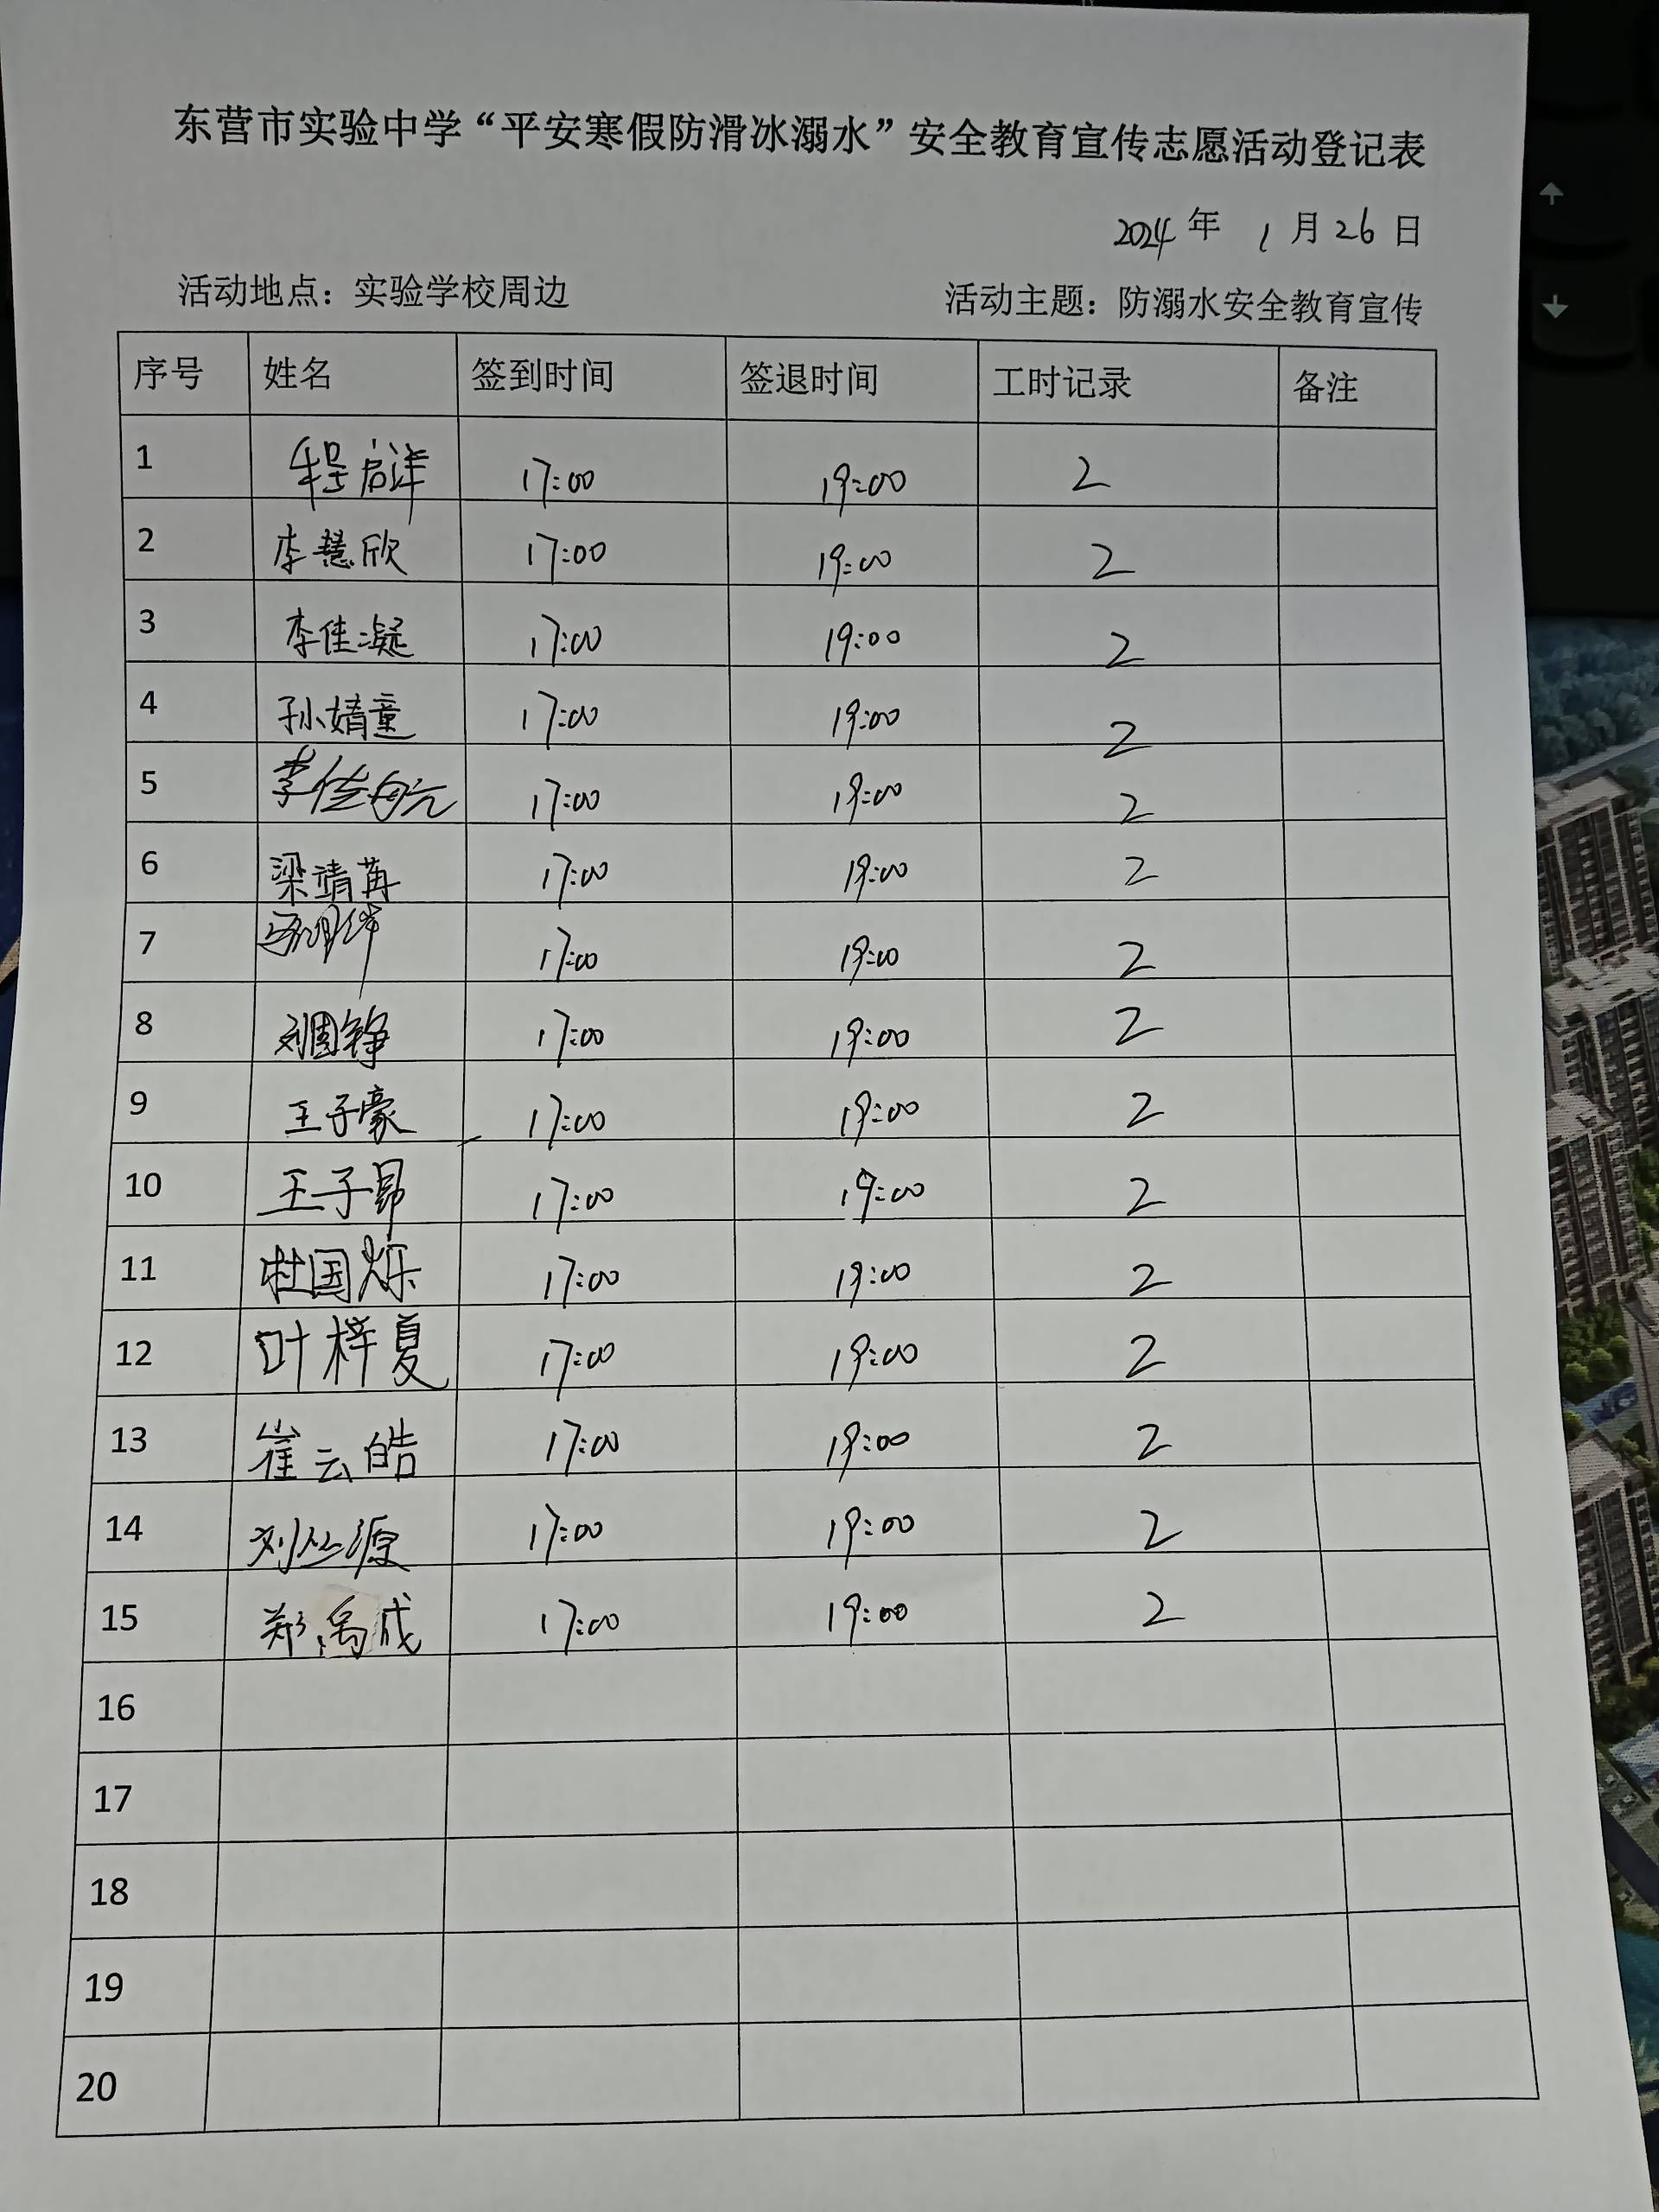 东营市实验中学“平安寒假防滑冰溺水”安全教育宣传志愿活动登记表
2024 年 1 月 26 日
活动地点：实验学校周边 活动主题：防溺水安全教育宣传
序号 姓名 签到时间 签退时间 工时记录 备注
1 程启洋 17:00 19:00 2
2 李慧欣 17:00 19:00 2
3 李佳凝 17:00 19:00 2
4 孙婧童 17:00 19:00 2
5 李佳 17:00 19:00 2
6 梁靖苒 17:00 19:00 2
7 17:00 19:00 2
8 刘国铮 17:00 19:00 2
9 王子豪 17:00 19:00 2
10 王子昂 17:00 19:00 2
11 杜国烁 17:00 19:00 2
12 叶梓夏 17:00 19:00 2
13 崔云皓 17:00 19:00 2
14 刘丛源 17:00 19:00 2
15 郑禹成 17:00 19:00 2
16
17
18
19
20